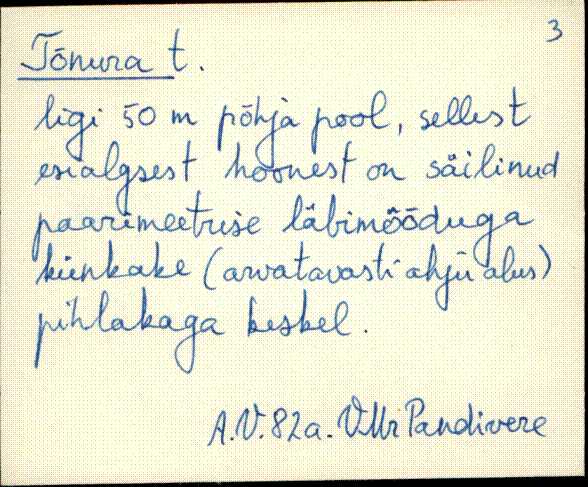 3
Tõnura t.
ligi 50 m põhja pool, sellest
esialgsest hoonest on säilinud
paarimeetrise läbimõõduga
künkake (arvatavasti ahju alus)
pihlakaga keskel.
A.V. 82a. V.Mr Pandivere